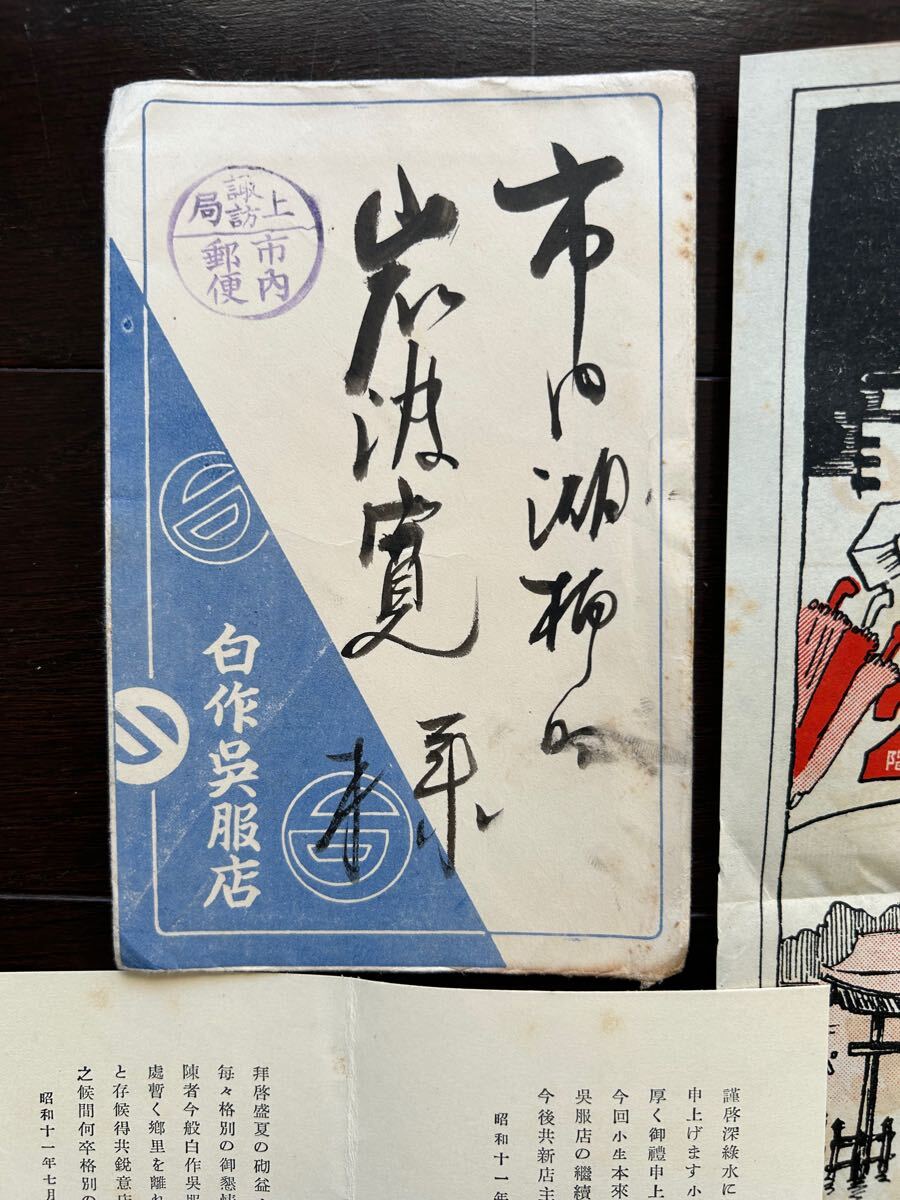 市内湖柳町
岩波寛
上諏訪局
市内郵便
白作吳服店
謹啓深綠水に
申上げます小
厚く御禮申上
今回小生本來
吳服店の繼續
今後共新店主
昭和十一年
拜啓盛夏の砌益
每々格別の御懇情
陳者今般白作吳服
處暫く鄕里を離れ
と存候得共銳意店
之候間何卒格別の
昭和十一年七月